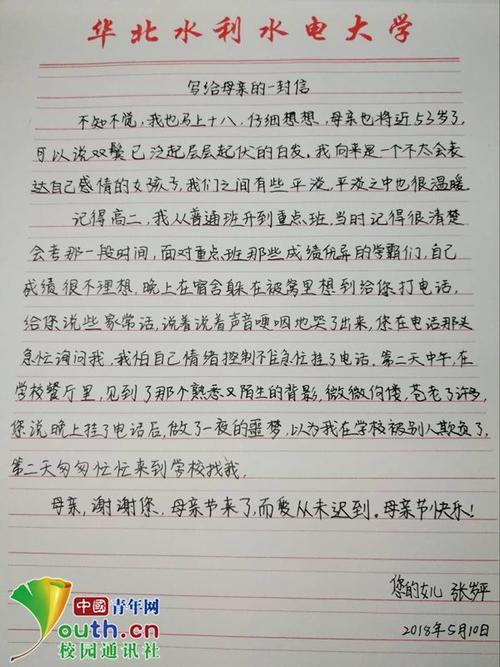 华北水利水电大学
写给母亲的一封信
不知不觉,我也马上十八,仔细想想,母亲也将近53岁了,
可以说双鬓已泛起层层起伏的白发。我向来是一个不太会表
达自己感情的女孩子,我们之间有些平淡,平淡之中也很温暖。
记得高二,我从普通班升到重点班,当时记得很清楚
会考那一段时间,面对重点班那些成绩优异的学霸们,自己
成绩很不理想,晚上在宿舍躲在被窝里想到给您打电话,
给您说些家常话,说着说着声音哽咽地哭了出来,您在电话那头
急忙询问我,我怕自己情绪控制不住急忙挂了电话。第二天中午,在
学校餐厅里,见到了那个熟悉又陌生的背影,微微佝偻,苍老了许多,
您说晚上挂了电话后,做了一夜的噩梦,以为我在学校被别人欺负了,
第二天匆匆忙忙来到学校找我。
母亲,谢谢您,母亲节来了,而爱从未迟到。母亲节快乐!
您的女儿 张岁平
2018年5月10日
中國青年网
Youth.cn
校园通讯社